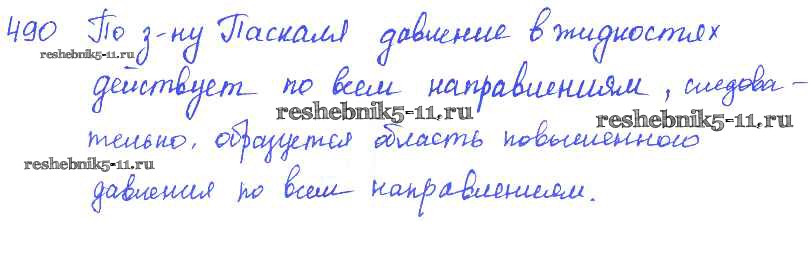 490 По з-ну Паскаля давление в жидкостях
reshebnik5-11.ru
действует по всем направлениям, следова-
reshebnik5-11.ru
reshebnik5-11.ru
тельно, образуется область повышенного
reshebnik5-11.ru
давления по всем направлениям.